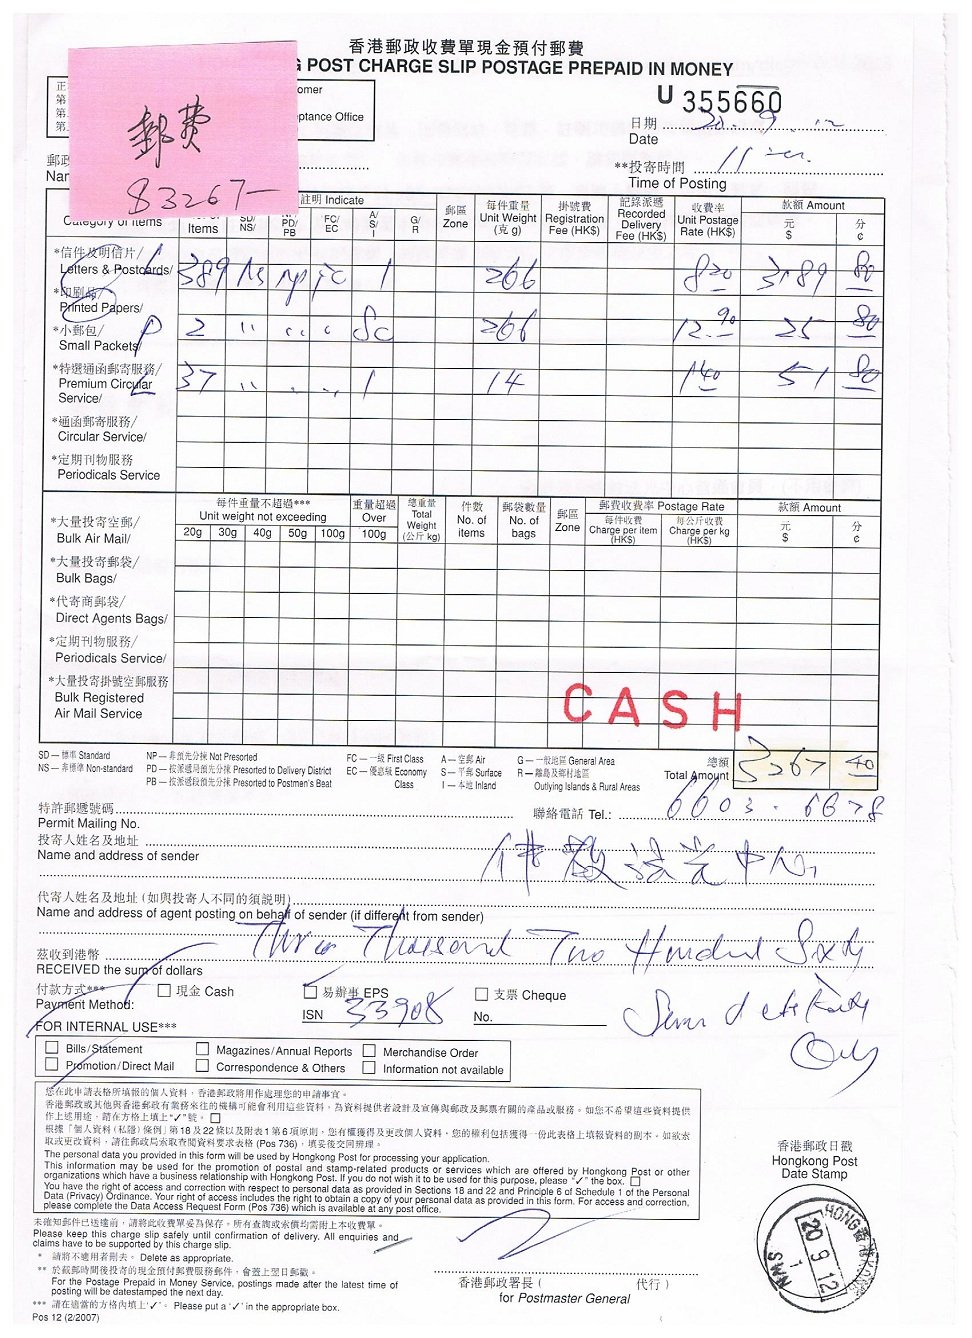 香港郵政收費單現金預付郵費
G POST CHARGE SLIP POSTAGE PREPAID IN MONEY
郵費
83267-
正
第
第
第
omer
ceptance Office
U 355660
日期 20.9.12
Date
**投寄時間
Time of Posting
郵政
Nam
註明 Indicate
Category of Items
Items
SD/
NS/
PD/
PB
FC/
EC
A/
S/
I
G/
R
郵區
Zone
每件重量
Unit Weight
(克 g)
掛號費
Registration
Fee (HK$)
記錄派遞
Recorded
Delivery
Fee (HK$)
收費率
Unit Postage
Rate (HK$)
款額 Amount
元
$
分
¢
*信件及明信片/
Letters & Postcards/
389 NS NP FC I 266 8.20 3189 80
*印刷品/
Printed Papers/
*小郵包/
Small Packets/
P 2 " 266 12.90 25 80
*特選通函郵寄服務/
Premium Circular
Service/
L 37 " 14 1.40 51 80
*通函郵寄服務/
Circular Service/
*定期刊物服務
Periodicals Service
每件重量不超過***
Unit weight not exceeding
20g 30g 40g 50g 100g
重量超過
Over
100g
總重量
Total
Weight
(公斤 kg)
件數
No. of
items
郵袋數量
No. of
bags
郵區
Zone
郵費收費率 Postage Rate
每件收費
Charge per item
(HK$)
每公斤收費
Charge per kg
(HK$)
款額 Amount
元
$
分
¢
*大量投寄空郵/
Bulk Air Mail/
*大量投寄郵袋/
Bulk Bags/
*代寄商郵袋/
Direct Agents Bags/
*定期刊物服務/
Periodicals Service/
*大量投寄掛號空郵服務
Bulk Registered
Air Mail Service
CASH
SD — 標準 Standard
NS — 非標準 Non-standard
NP — 非預先分揀 Not Presorted
PD — 按派遞局預先分揀 Presorted to Delivery District
PB — 按派遞段預先分揀 Presorted to Postmen's Beat
FC — 一級 First Class
EC — 優惠級 Economy
Class
A — 空郵 Air
S — 平郵 Surface
I — 本地 Inland
G — 一般地區 General Area
R — 離島及鄉村地區
Outlying Islands & Rural Areas
總額
Total Amount
3267 40
特許郵遞號碼
Permit Mailing No.
聯絡電話 Tel.: 6603-6678
投寄人姓名及地址
Name and address of sender
佛教法光中心
代寄人姓名及地址 (如與投寄人不同的須說明)
Name and address of agent posting on behalf of sender (if different from sender)
茲收到港幣
RECEIVED the sum of dollars
Three Thousand Two Hundred Sixty
Seven
Only
付款方式***
Payment Method:
現金 Cash
易辦事 EPS
ISN 33908
支票 Cheque
No.
FOR INTERNAL USE***
Bills/Statement
Magazines/Annual Reports
Merchandise Order
Promotion/Direct Mail
Correspondence & Others
Information not available
您在此申請表格所填報的個人資料，香港郵政將用作處理您的申請事宜。
香港郵政或其他與香港郵政有業務來往的機構可能會利用這些資料，為資料提供者設計及宣傳與郵政及郵票有關的產品或服務。如您不希望這些資料提供
作上述用途，請在方格上填上"✓"號。
根據「個人資料(私隱)條例」第18及22條以及附表1第6項原則，您有權獲得及更改個人資料，您的權利包括獲得一份此表格上填報資料的副本。如欲索
取或更改資料，請往郵政局索取查閱資料要求表格 (Pos 736)，填妥後交回辨理。
The personal data you provided in this form will be used by Hongkong Post for processing your application.
This information may be used for the promotion of postal and stamp-related products or services which are offered by Hongkong Post or other
organizations which have a business relationship with Hongkong Post. If you do not wish it to be used for this purpose, please "✓" the box.
You have the right of access and correction with respect to personal data as provided in Sections 18 and 22 and Principle 6 of Schedule 1 of the Personal
Data (Privacy) Ordinance. Your right of access includes the right to obtain a copy of your personal data as provided in this form. For access and correction,
please complete the Data Access Request Form (Pos 736) which is available at any post office.
未確知郵件已送達前，請將此收費單妥為保存。所有查詢或索償均需附上本收費單。
Please keep this charge slip safely until confirmation of delivery. All enquiries and
claims have to be supported by this charge slip.
* 請將不適用者刪去。 Delete as appropriate.
** 於截郵時間後投寄的現金預付郵費服務郵件，會蓋上翌日郵戳。
For the Postage Prepaid in Money Service, postings made after the latest time of
posting will be datestamped the next day.
*** 請在適當的方格內填上'✓'。 Please put a '✓' in the appropriate box.
Pos 12 (2/2007)
香港郵政署長 ( 代行 )
for Postmaster General
香港郵政日戳
Hongkong Post
Date Stamp
HONG KONG
20 9 12
1